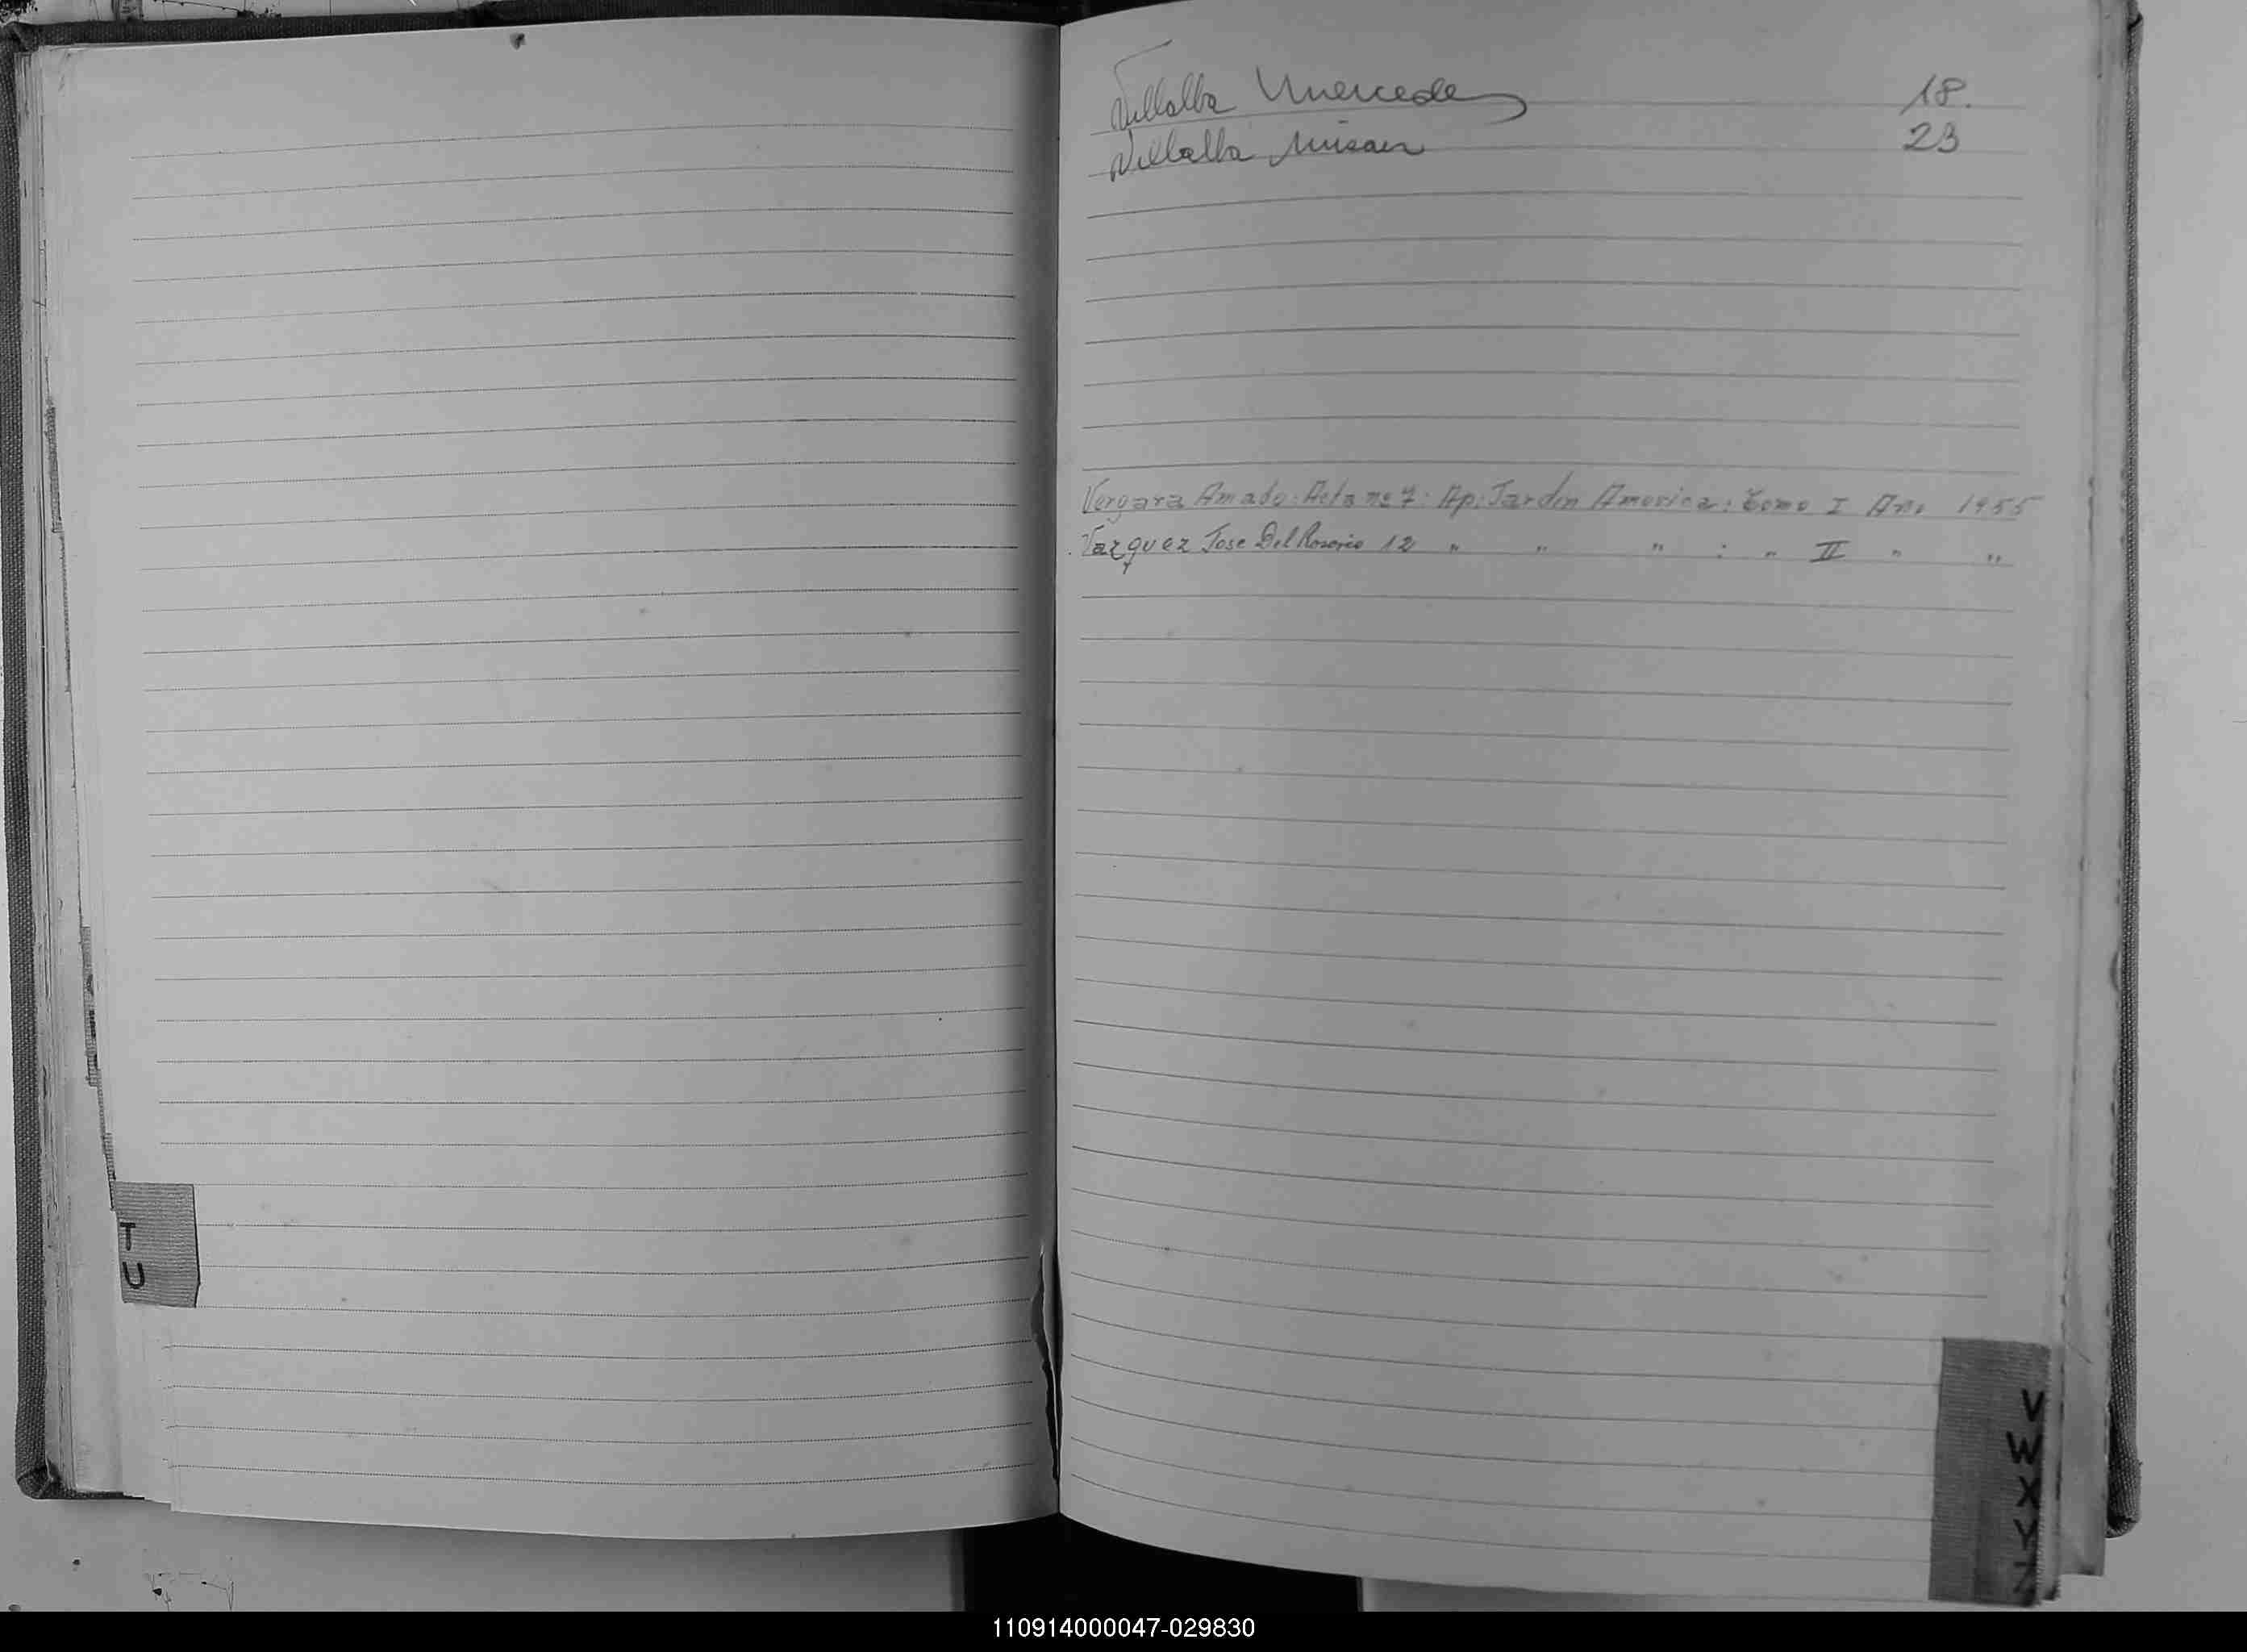 T
U
Villalba Mercedes 18.
Villalba 23
Vergara Amado: Acta no 7: Ap: Jardin America: Tomo I Año 1955
Vazquez Jose Del Rosario 12 " " " : " II " "
V
W
X
Y
Z
110914000047-029830